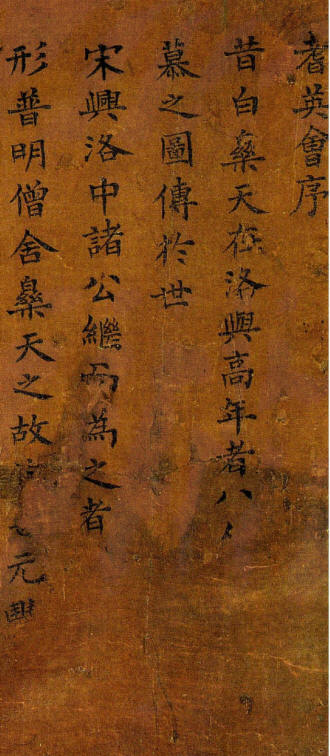 耆英會序
昔白樂天在洛與高年者八人
慕之圖傳於世
宋興洛中諸公繼而為之者
形普明僧舍樂天之故元豐